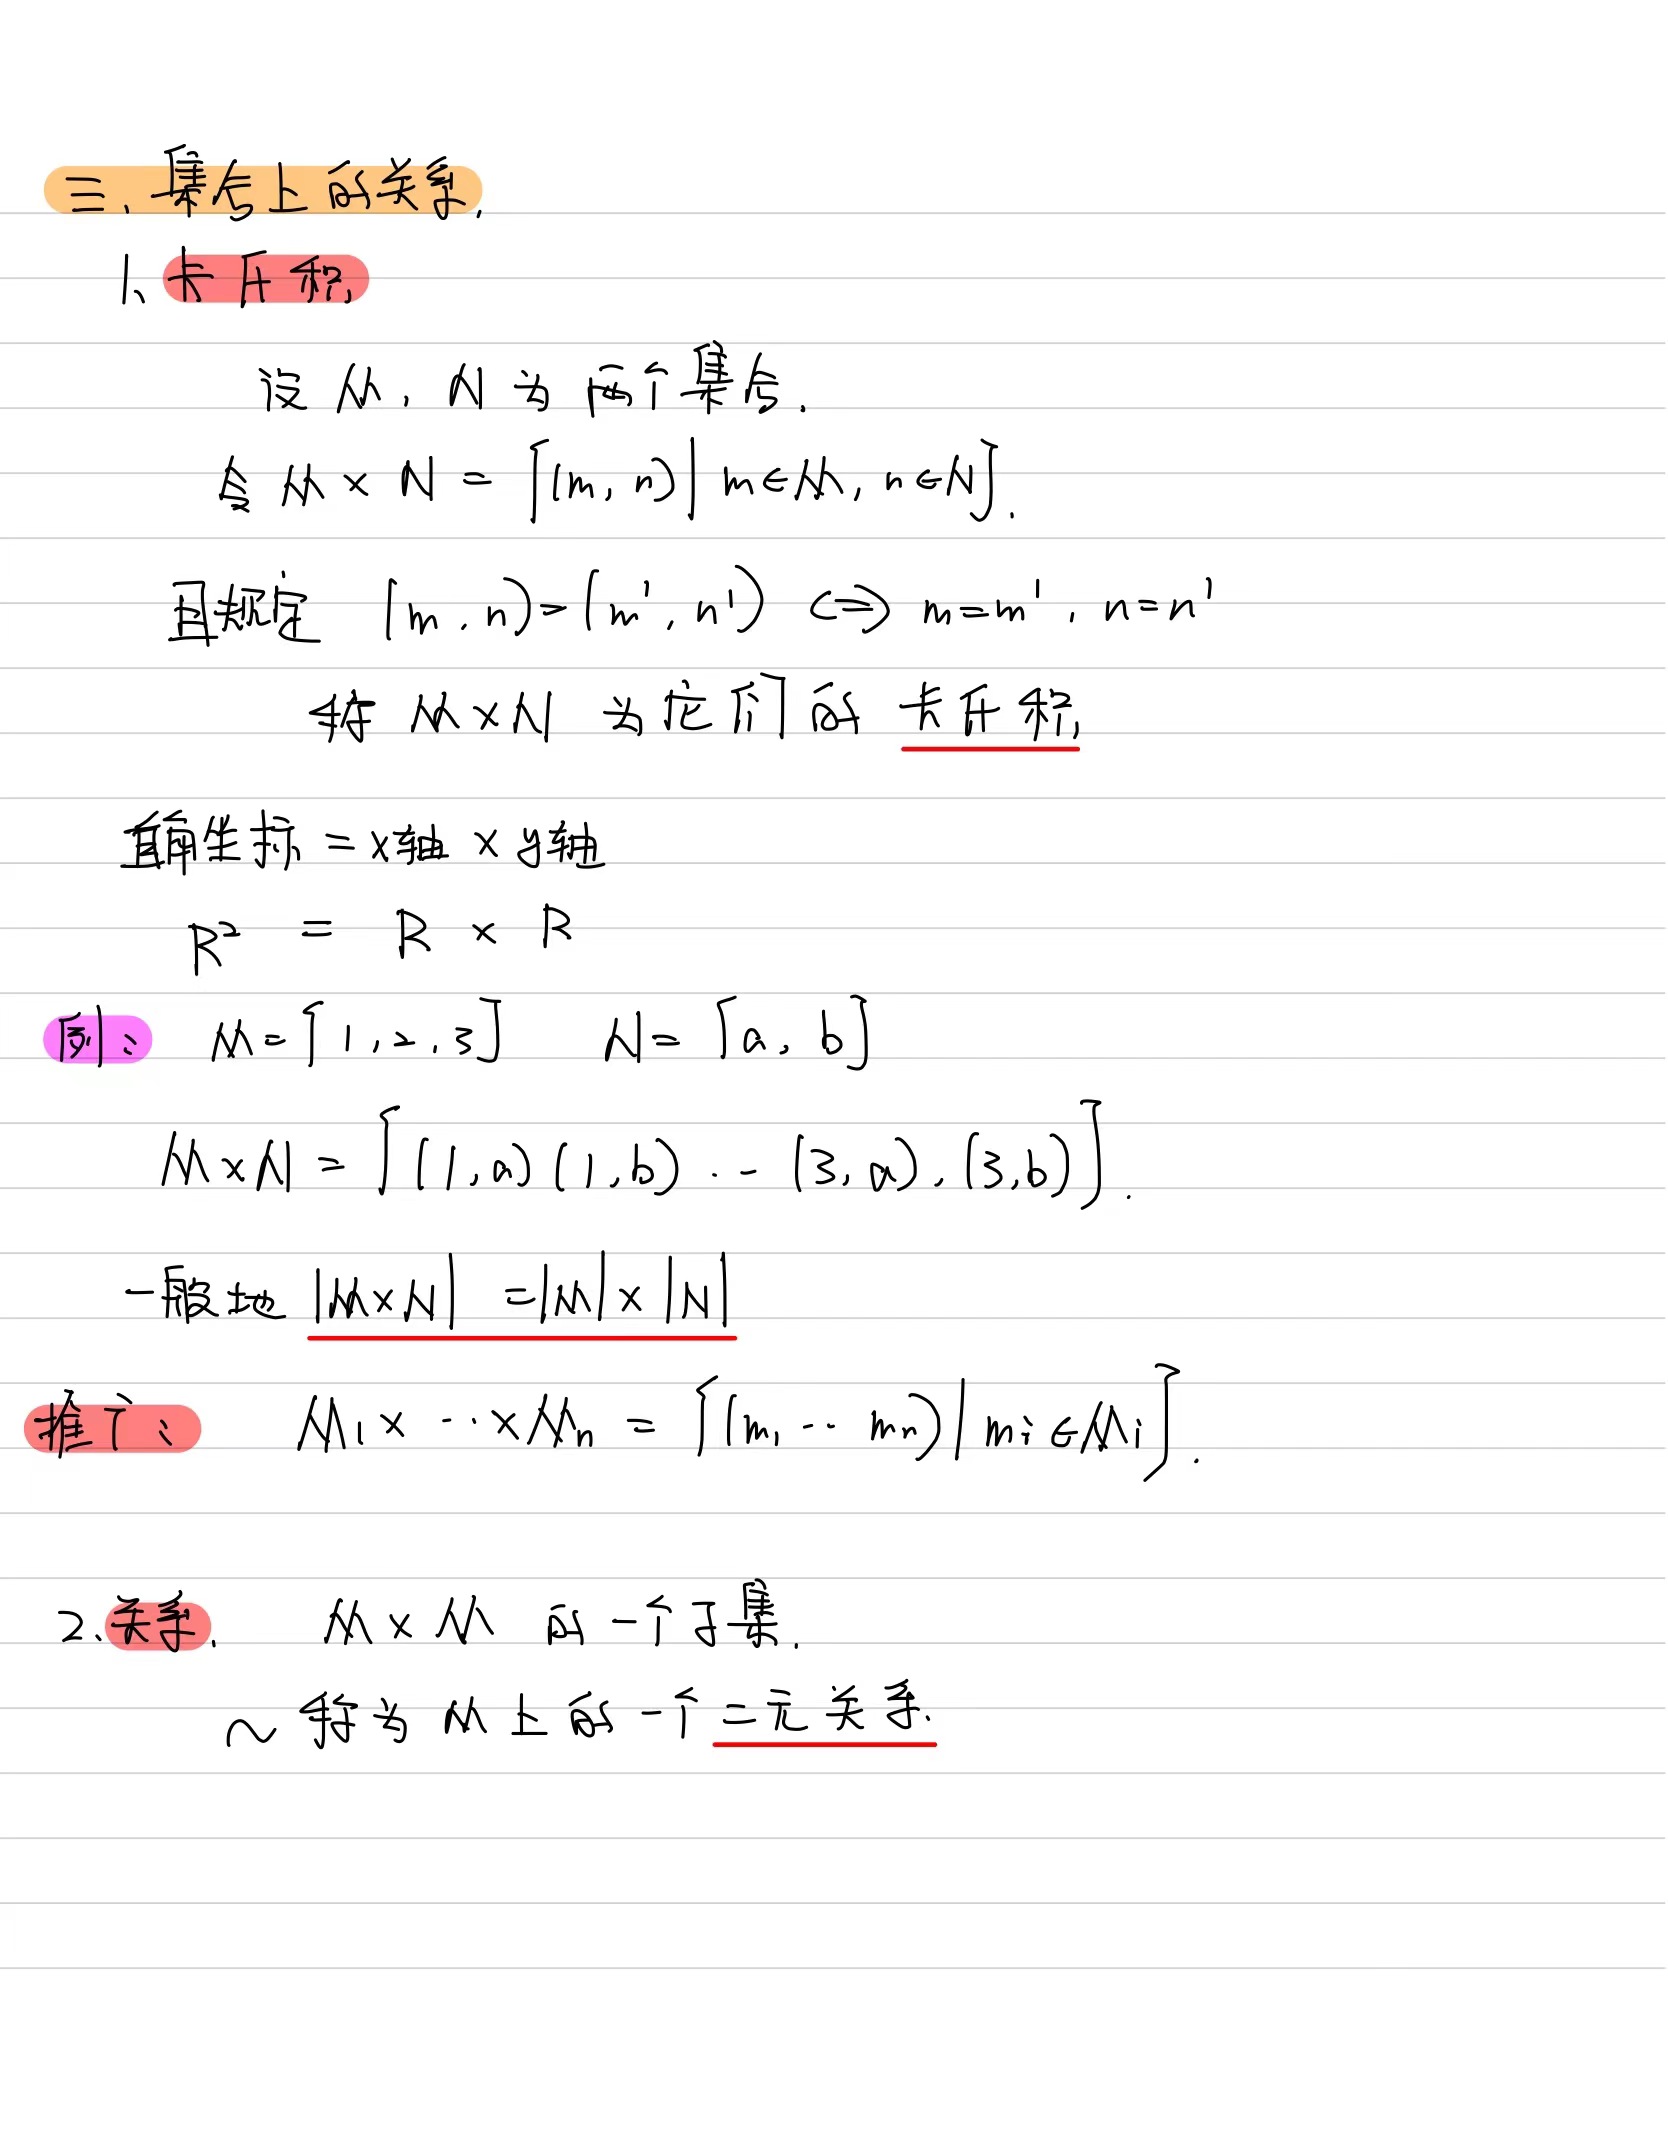 三、集合上的关系.
1、卡氏积
设 M, N 为两个集合.
令 M × N = {(m, n) | m∈M, n∈N}.
且规定 (m, n)=(m', n') <=> m=m', n=n'
称 M×N 为它们的卡氏积
直角坐标 = x轴 × y轴
R² = R × R
例: M={1,2,3} N={a, b}
M×N = {(1,a)(1,b)··-(3,a),(3,b)}.
一般地 |M×N| =|M|×|N|
推广: M₁× ··×Mₙ = {(m₁ ·· mₙ)|mᵢ∈Mᵢ}.
2.关系. M×M 的一个子集.
~ 称为 M 上的一个二元关系.